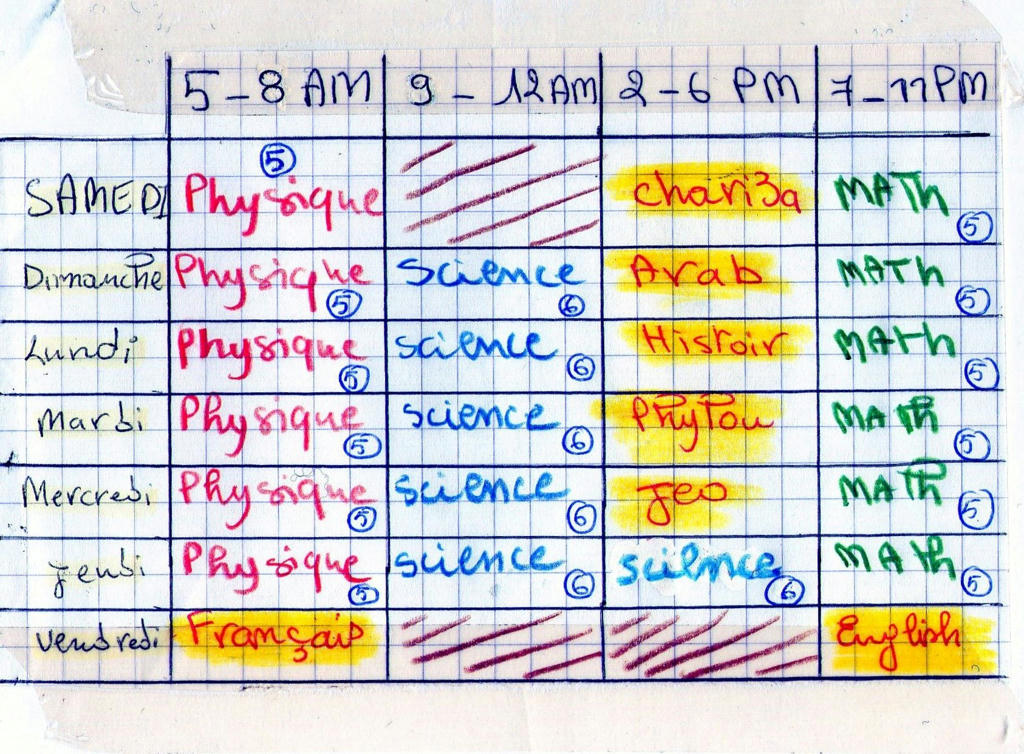 5-8 AM 9-12AM 2-6 PM 7-11PM
SAMEDI Physique 5 chari3a MATh 5
Dimanche Physique 5 Science 6 Arab MATh 5
Lundi Physique 5 science 6 Histoir MATh 5
Mardi Physique 5 science 6 PhyTou MATh 5
Mercredi Physique 5 science 6 jeo MATh 5
jeudi Physique 5 science 6 science 6 MATh 5
Vendredi Français English